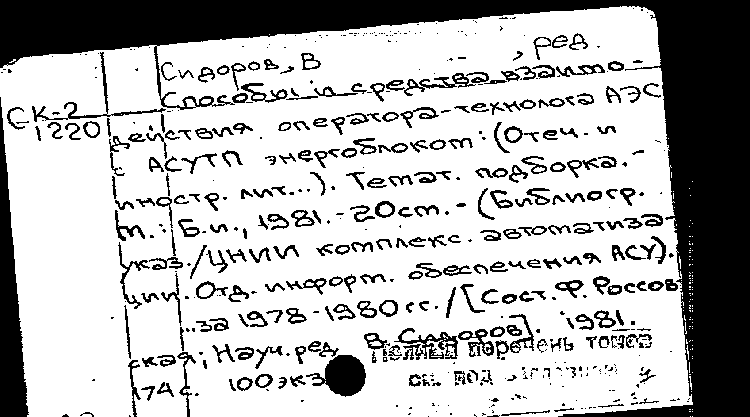 Сидоров, В , ред.
СК-2 Способы и средства взаимо-
1220 действия оператора-технолога АЭС
с АСУТП энергоблоком: (Отеч. и
иностр. лит...). Темат. подборка.-
М.: Б.и., 1981.-20см.- (Библиогр.
указ./ЦНИИ комплекс. автоматиза-
ции. Отд. информ. обеспечения АСУ).
...за 1978-1980 гг. /[Сост. Ф. Россов
ская; Науч. ред В. Сидоров]. 1981.
174 с. 100 экз
Полный перечень томов
см. под